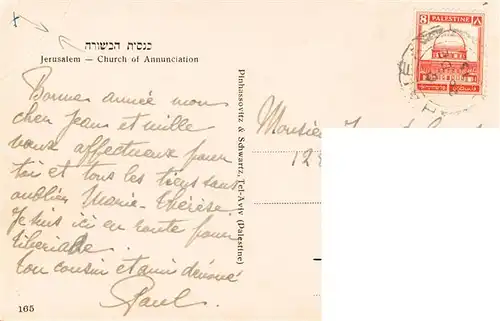 כנסית הבשורה
Jerusalem — Church of Annunciation
Bonne année mon
cher Jean et mille
vœux affectueux pour
toi et tous les tiens sans
oublier Marie-Thérèse
Je suis ici en route pour
Tiberiade.
ton cousin et ami dévoué
Paul.
165
Pinhassovitz & Schwartz, Tel-Aviv (Palestine)
8 PALESTINE ٨
Monsieur
128